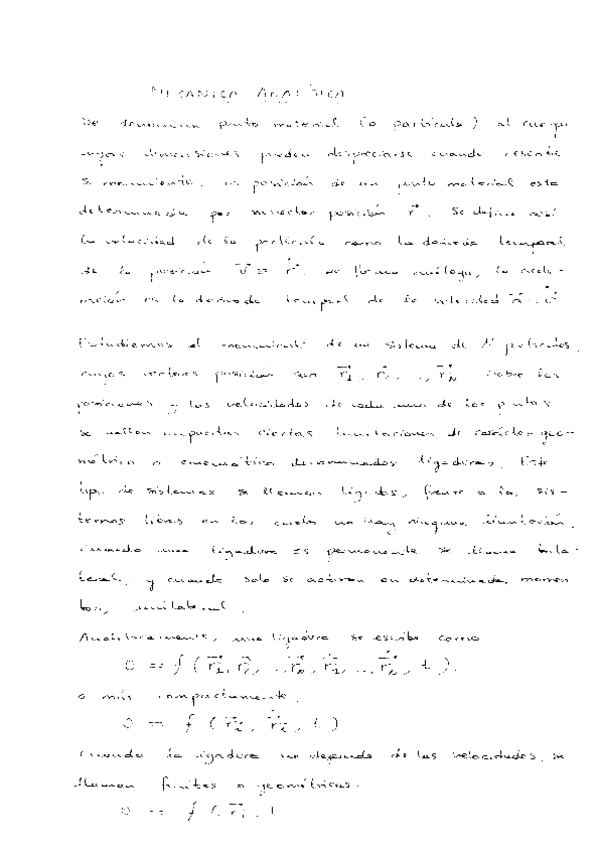 MECANICA ANALÍTICA
Se denomina punto material (o partícula) al cuerpo
cuyas dimensiones pueden despreciarse cuando describe
su movimiento. La posición de un punto material esta
determinada por su vector posición r⃗. Se define así
la velocidad de la partícula como la derivada temporal
de la posición v⃗ = ṙ⃗. De forma análoga, la acele-
ración es la derivada temporal de la velocidad
Estudiemos el movimiento de un sistema de N partículas,
cuyos vectores posición son r⃗1, r⃗2, ..., r⃗N. Sobre las
posiciones y las velocidades de cada uno de los puntos
se hallan impuestas ciertas limitaciones de carácter geo-
métrico o cinemático denominadas ligaduras. Este
tipo de sistemas se llaman ligados, frente a los sis-
temas libres en los cuales no hay ninguna limitación.
Cuando una ligadura es permanente se llama bila-
teral, y cuando solo se activan en determinados momen
tos, unilateral.
Analíticamente, una ligadura se escribe como
0 = f (r⃗1, r⃗2, ..., r⃗N, ṙ⃗1, ..., ṙ⃗N, t),
o más compactamente,
0 = f (r⃗i, ṙ⃗i, t)
Cuando la ligadura no depende de las velocidades, se
llaman finitas o geométricas.
0 = f (r⃗i, t